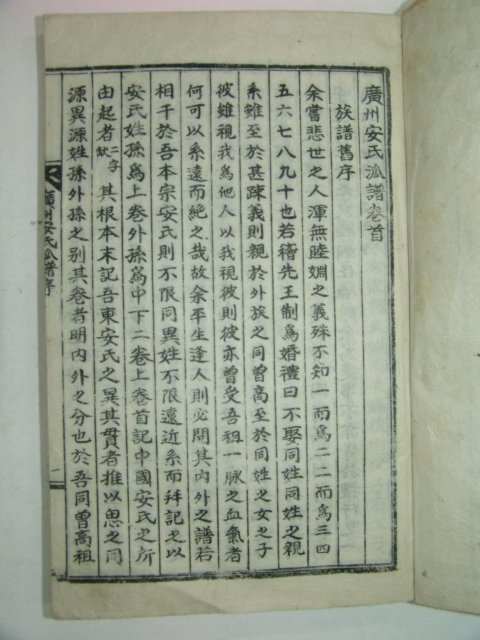 廣州安氏派譜卷首
族譜舊序
余嘗悲世之人渾無睦婣之義殊不知一而爲二二而爲三四
五六七八九十也若稽先王制爲婚禮曰不娶同姓同姓之親
系雖至於甚疎義則親於外族之同曾高至於同姓之女之子
彼雖視我爲他人以我視彼則彼亦曾受吾祖一脉之血氣者
何可以系遠而絶之哉故余平生逢人則必問其內外之譜若
相干於吾本宗安氏則不限同異姓不限遠近系而拜記之以
安氏姓孫爲上卷外孫爲中下二卷上卷首記中國安氏之所
由起者二字缺其根本末記吾東安氏之異其貫者推以思之同
源異源姓孫外孫之別其卷者明內外之分也於吾同曾高祖
廣州安氏派譜序
一